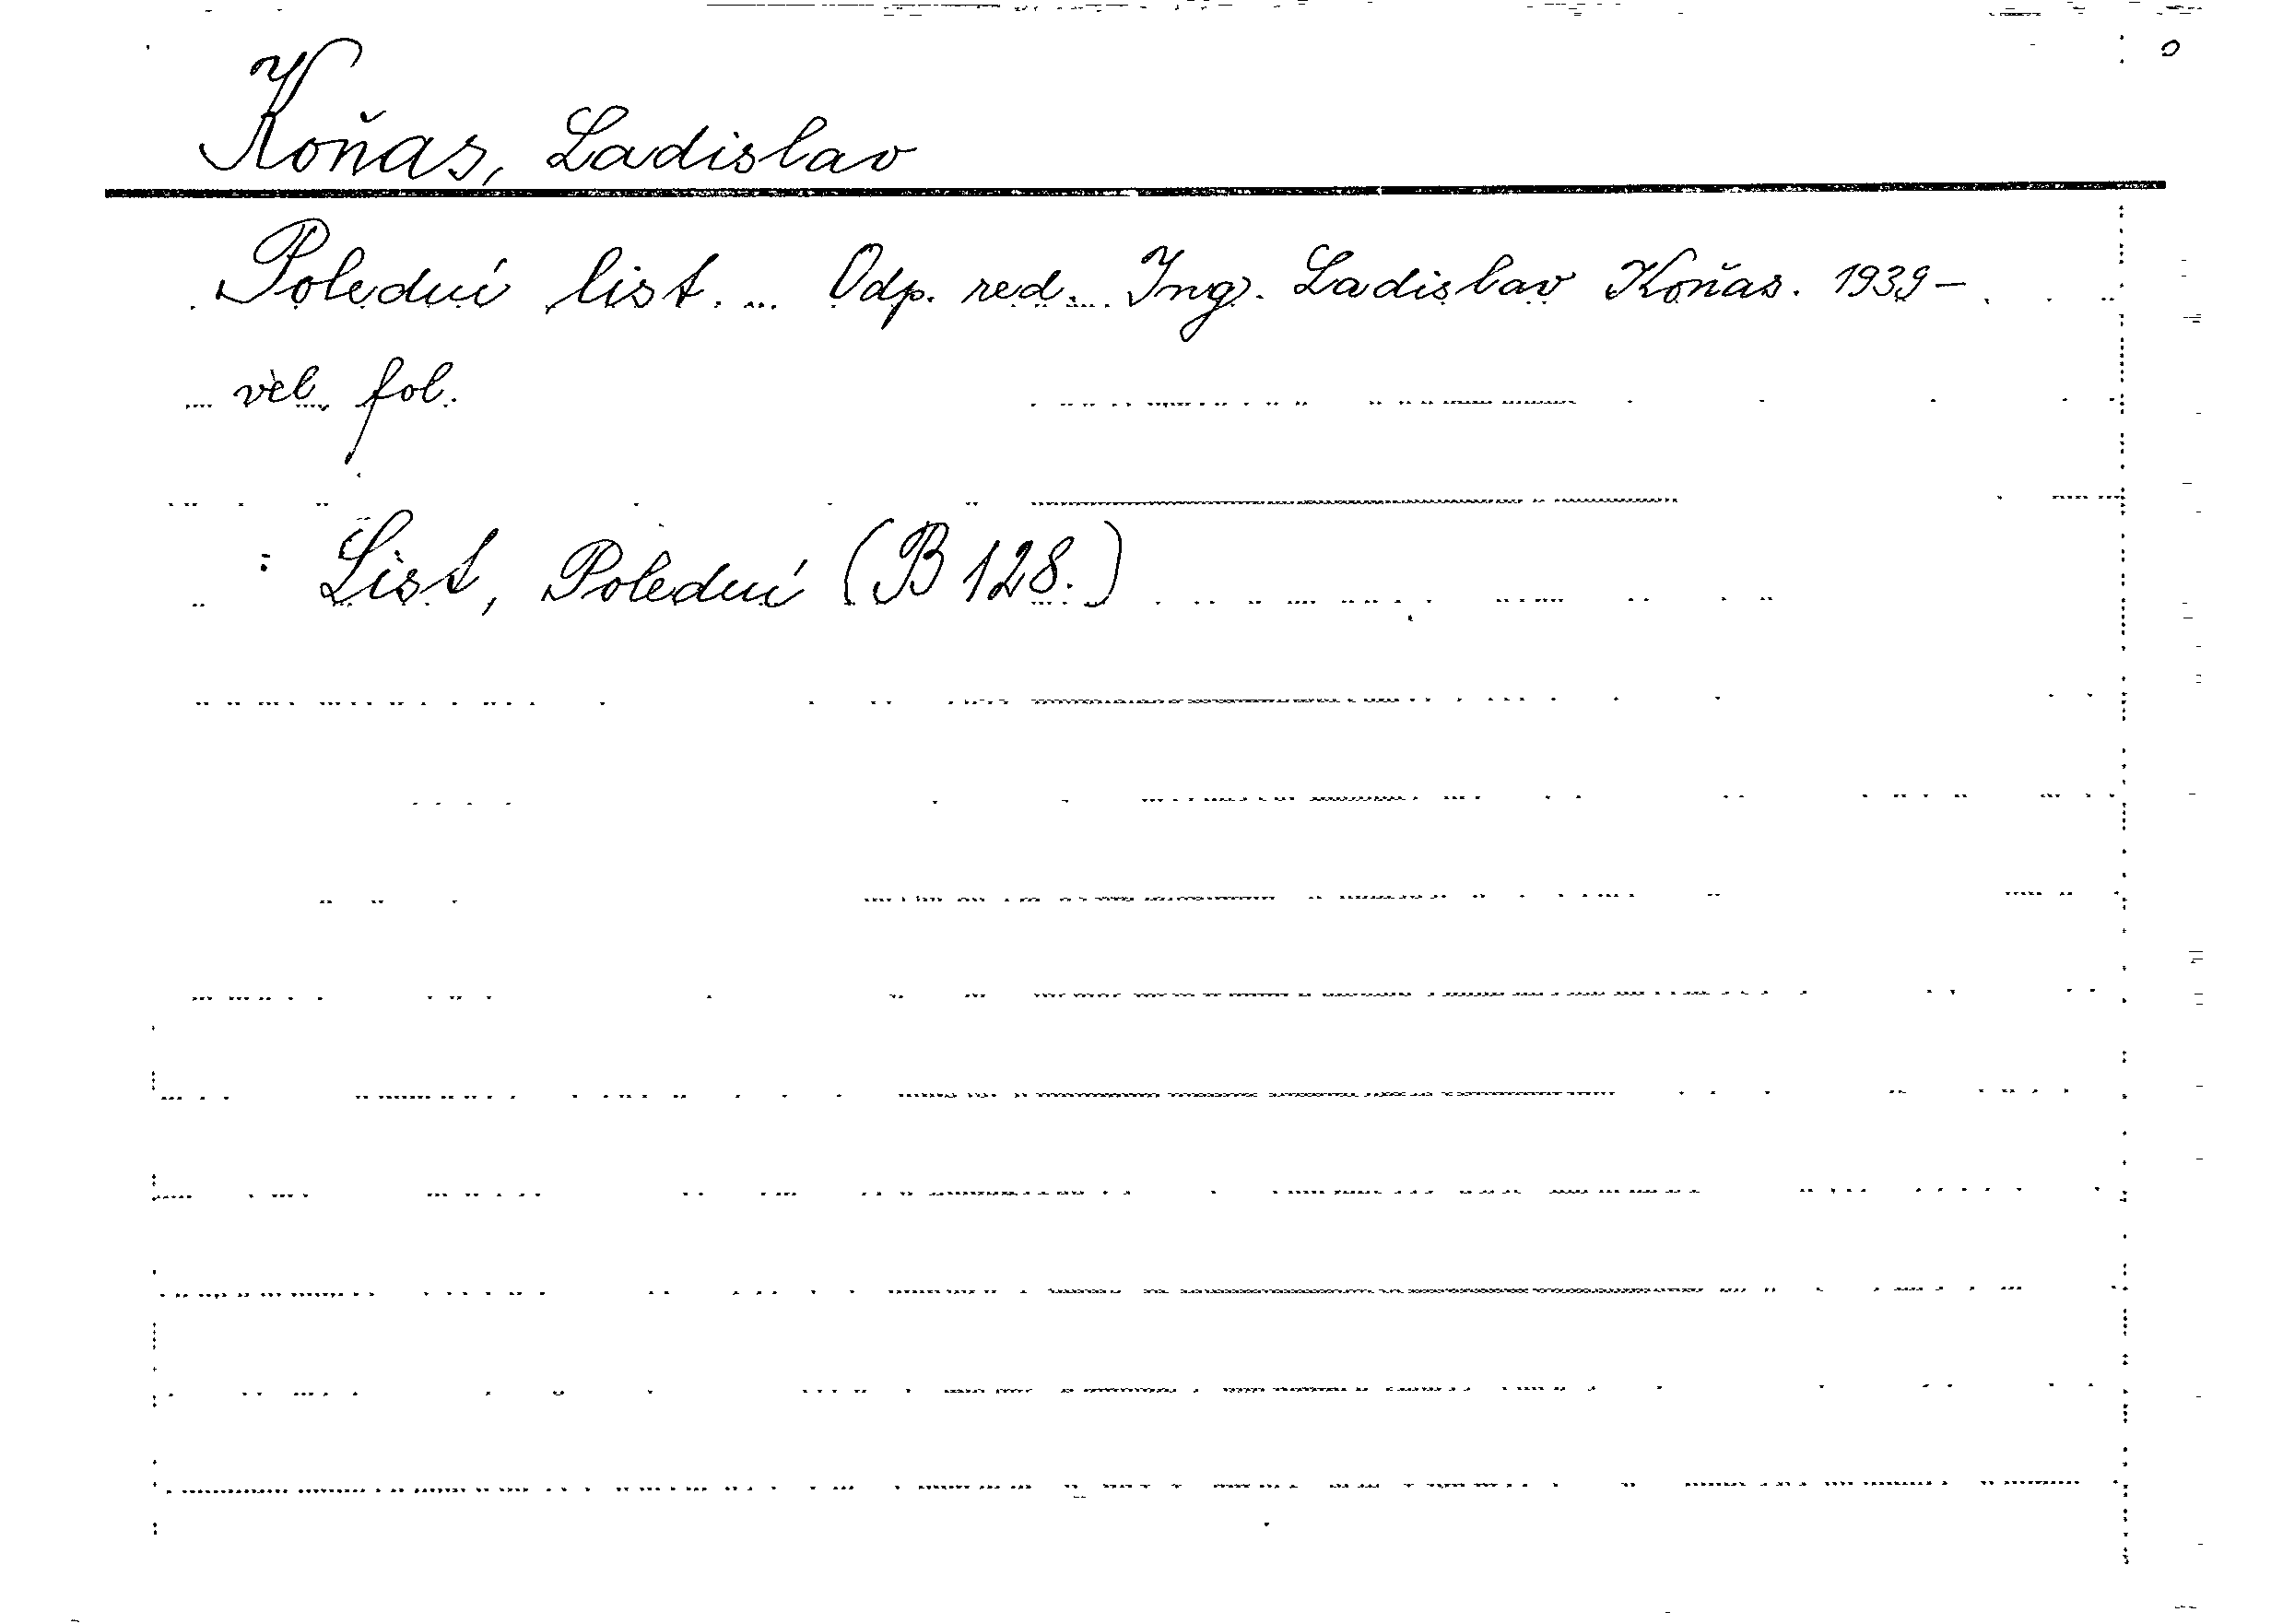 Koňas, Ladislav
Polední list. ... Odp. red. ... Ing. Ladislav Koňas. 1939 –
vel. fol.
: List, Polední (B 128.)